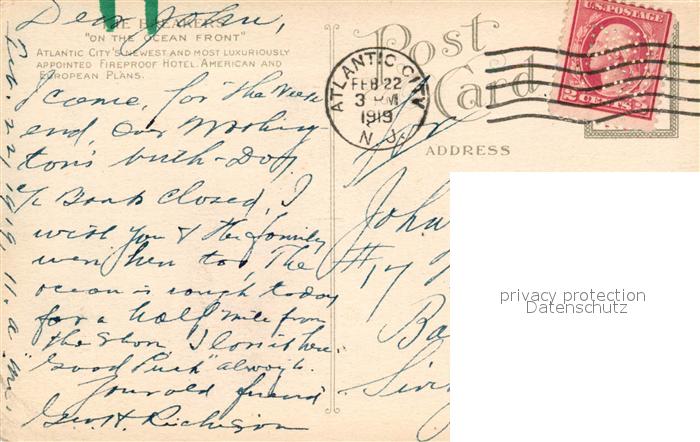 Dear John,
THE BREAKERS
"ON THE OCEAN FRONT"
ATLANTIC CITY'S NEWEST AND MOST LUXURIOUSLY
APPOINTED FIREPROOF HOTEL. AMERICAN AND
EUROPEAN PLANS.
Feb. 22/1919 11. a. m.
I came, for the Week
end, over Washing-
ton's birth-Day
Bank closed, I
wish you & the family
were here too, The
ocean is rough today
for a half mile from
the Shore
"Good Luck" always.
Your old friend
Geo. H. Richison
Post
Card
ATLANTIC CITY
FEB 22
3 PM
1919
N. J.
U.S. POSTAGE
2 CENTS 2
ADDRESS
John
#17
privacy protection
Datenschutz